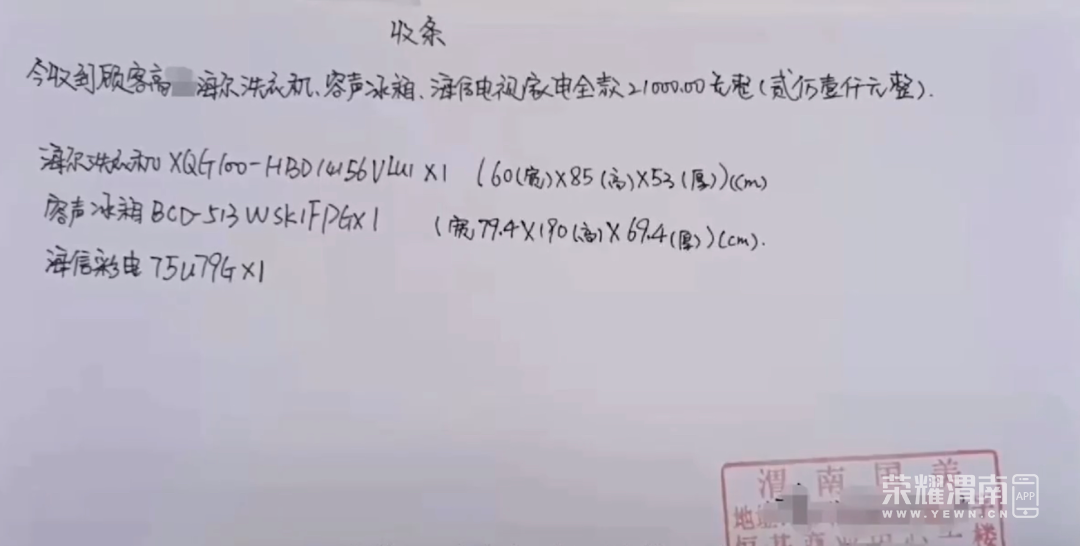 收条
今收到顾客高 海尔洗衣机、容声冰箱、海信电视家电全款21000.00元整(贰万壹仟元整).
海尔洗衣机XQG100-HBD14156VLU1X1 (60(宽)X85(高)X53(厚))(cm)
容声冰箱BCD-513WSK1FPGX1 (宽79.4X190(高)X69.4(厚))(cm).
海信彩电75U79GX1
渭南国美
地址
楼
荣耀渭南 APP
WWW.YEWN.CN